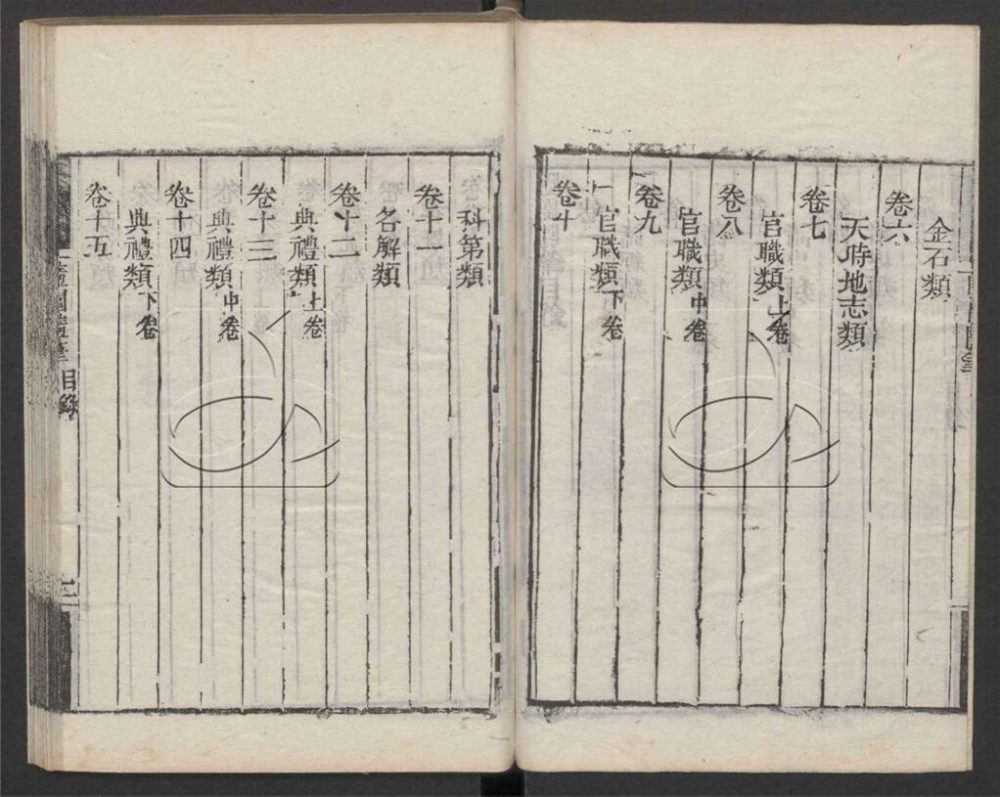 金石類
卷六
天時地志類
卷七
官職類上卷
卷八
官職類中卷
卷九
官職類下卷
卷十
科第類
卷十一
名解類
卷十二
典禮類上卷
卷十三
典禮類中卷
卷十四
典禮類下卷
卷十五
目錄
二